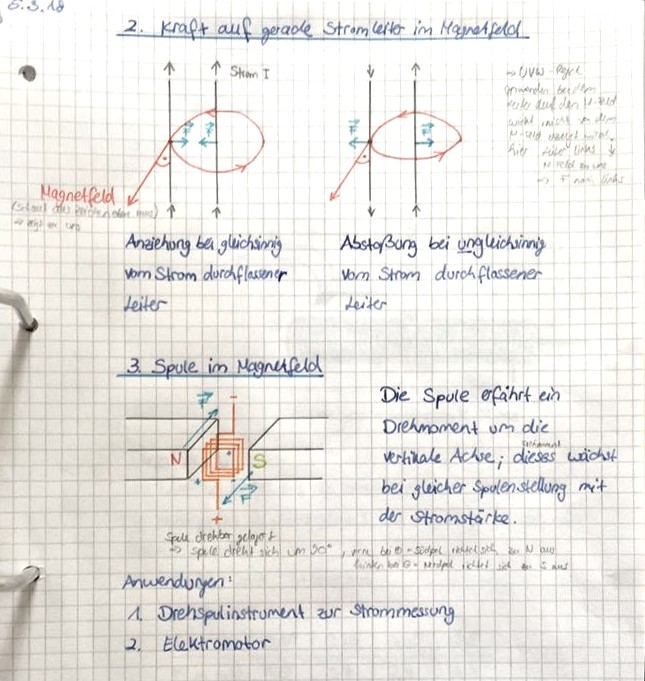 5.3.18
2. Kraft auf gerade Stromleiter im Magnetfeld
Strom I
F F
F F
→ UVW-Regel
anwenden bei dem
Leiter auf den M-Feld
wirkt nicht
hier links
→ F nach links
Magnetfeld
Anziehung bei gleichsinnig
vom Strom durchflossener
Leiter
Abstoßung bei ungleichsinnig
vom Strom durchflossener
Leiter
3. Spule im Magnetfeld
F
-
N
S
F
+
Die Spule erfährt ein
Drehmoment um die
vertikale Achse; dieses wächst
bei gleicher Spulenstellung mit
der Stromstärke.
Spule drehbar gelagert
⇒ Spule dreht sich um 90°, vorne bei ⊕ - Südpol richtet sich zu N aus
hinten bei ⊖ - Nordpol richtet sich zu S aus
Anwendungen:
1. Drehspulinstrument zur Strommessung
2. Elektromotor